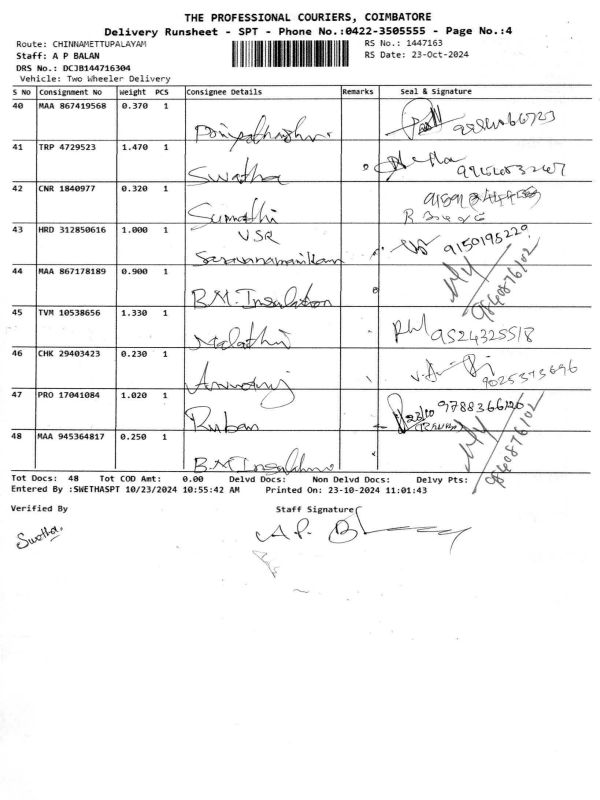 THE PROFESSIONAL COURIERS, COIMBATORE
Delivery Runsheet - SPT - Phone No.:0422-3505555 - Page No.:4
Route: CHINNAMETTUPALAYAM RS No.: 1447163
Staff: A P BALAN RS Date: 23-Oct-2024
DRS No.: DCJB144716304
Vehicle: Two Wheeler Delivery
S No Consignment No Weight PCS Consignee Details Remarks Seal & Signature
40 MAA 867419568 0.370 1
41 TRP 4729523 1.470 1 Swatha
42 CNR 1840977 0.320 1 Sumathi
43 HRD 312850616 1.000 1 VSR Saravanamanikam 9150195220
44 MAA 867178189 0.900 1 B.M. Insulation 9840876102
45 TVM 10538656 1.330 1 Malathi 9524325518
46 CHK 29403423 0.230 1 9025373696
47 PRO 17041084 1.020 1 Ruban
48 MAA 945364817 0.250 1 B.M Insulation 9840876102
Tot Docs: 48 Tot COD Amt: 0.00 Delvd Docs: Non Delvd Docs: Delvy Pts:
Entered By :SWETHASPT 10/23/2024 10:55:42 AM Printed On: 23-10-2024 11:01:43
Verified By Staff Signature
Swetha. A.P.